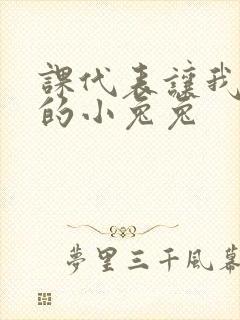 課代表讓我
的小兔兔
夢里三千風幕